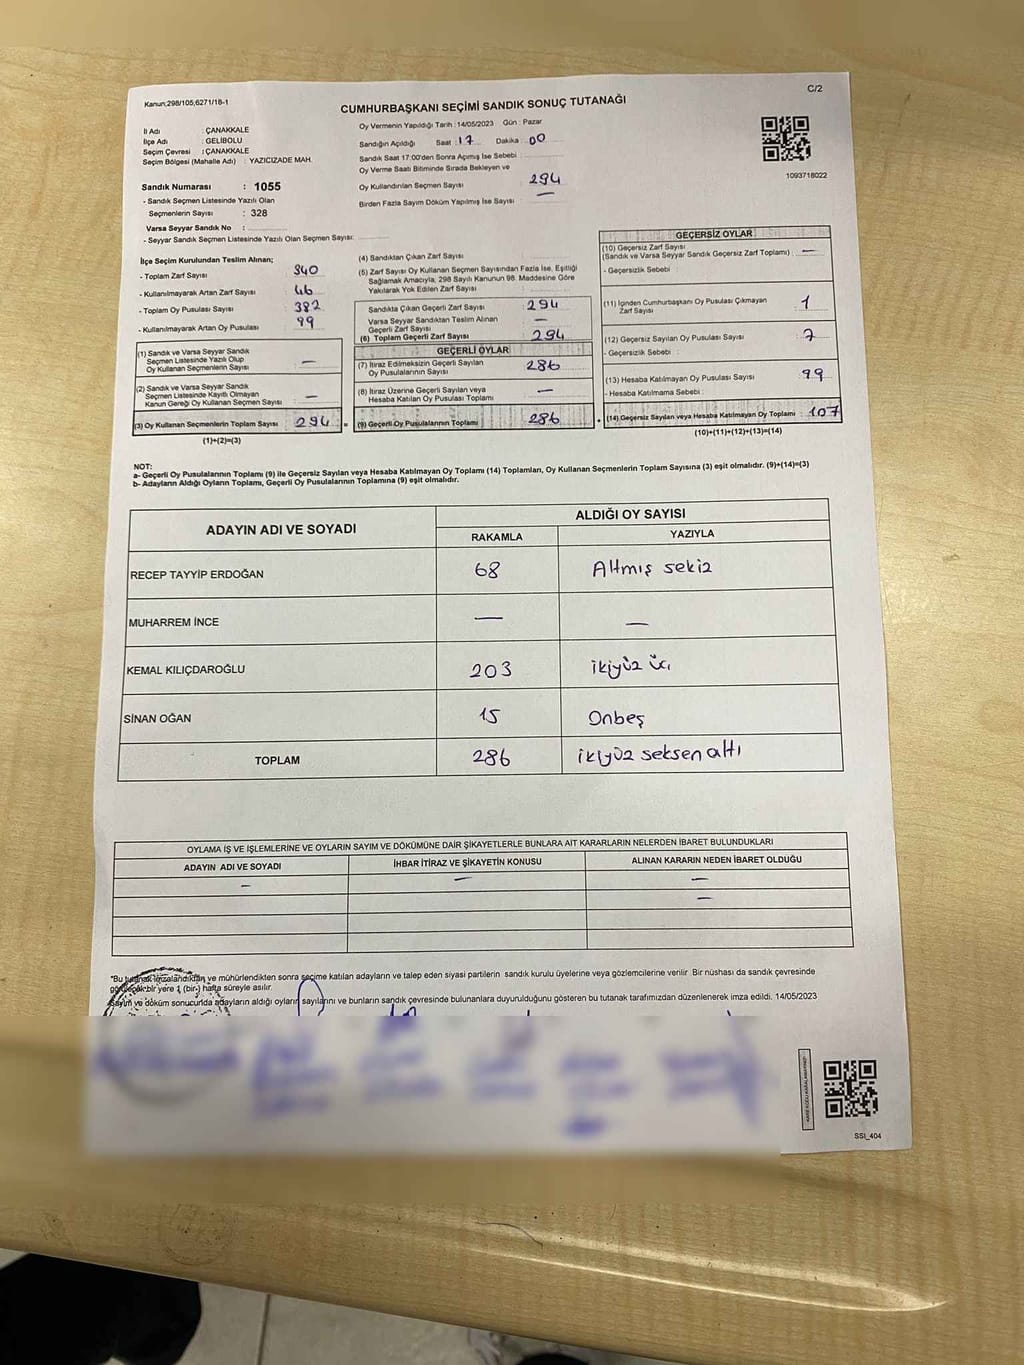 Kanun;298/105,6271/18-1
C/2
CUMHURBAŞKANI SEÇİMİ SANDIK SONUÇ TUTANAĞI
İl Adı : ÇANAKKALE
İlçe Adı : GELİBOLU
Seçim Çevresi : ÇANAKKALE
Seçim Bölgesi (Mahalle Adı) : YAZICIZADE MAH.
Sandık Numarası : 1055
- Sandık Seçmen Listesinde Yazılı Olan
Seçmenlerin Sayısı : 328
Varsa Seyyar Sandık No :
- Seyyar Sandık Seçmen Listesinde Yazılı Olan Seçmen Sayısı:
Oy Vermenin Yapıldığı Tarih :14/05/2023 Gün : Pazar
Sandığın Açıldığı Saat : 17 Dakika : 00
Sandık Saat 17:00'den Sonra Açımış İse Sebebi :
Oy Verme Saati Bitiminde Sırada Bekleyen ve
Oy Kullandırılan Seçmen Sayısı : 294
Birden Fazla Sayım Döküm Yapılmış İse Sayısı : —
1093718022
İlçe Seçim Kurulundan Teslim Alınan;
- Toplam Zarf Sayısı : 340
- Kullanılmayarak Artan Zarf Sayısı : 46
- Toplam Oy Pusulası Sayısı : 382
- Kullanılmayarak Artan Oy Pusulası : 99
(1) Sandık ve Varsa Seyyar Sandık
Seçmen Listesinde Yazılı Olup
Oy Kullanan Seçmenlerin Sayısı : —
(2) Sandık ve Varsa Seyyar Sandık
Seçmen Listesinde Kayıtlı Olmayan
Kanun Gereği Oy Kullanan Seçmen Sayısı : —
(3) Oy Kullanan Seçmenlerin Toplam Sayısı : 294 =
(1)+(2)=(3)
(4) Sandıktan Çıkan Zarf Sayısı :
(5) Zarf Sayısı Oy Kullanan Seçmen Sayısından Fazla İse, Eşitliği
Sağlamak Amacıyla, 298 Sayılı Kanunun 98. Maddesine Göre
Yakılarak Yok Edilen Zarf Sayısı :
Sandıkta Çıkan Geçerli Zarf Sayısı : 294
Varsa Seyyar Sandıktan Teslim Alınan
Geçerli Zarf Sayısı : —
(6) Toplam Geçerli Zarf Sayısı : 294
GEÇERLİ OYLAR
(7) İtiraz Edilmeksizin Geçerli Sayılan
Oy Pusulalarının Sayısı : 286
(8) İtiraz Üzerine Geçerli Sayılan veya
Hesaba Katılan Oy Pusulası Toplamı : —
(9) Geçerli Oy Pusulalarının Toplamı : 286 +
GEÇERSİZ OYLAR
(10) Geçersiz Zarf Sayısı
(Sandık ve Varsa Seyyar Sandık Geçersiz Zarf Toplamı) : —
- Geçersizlik Sebebi :
(11) İçinden Cumhurbaşkanı Oy Pusulası Çıkmayan
Zarf Sayısı : 1
(12) Geçersiz Sayılan Oy Pusulası Sayısı : 7
- Geçersizlik Sebebi :
(13) Hesaba Katılmayan Oy Pusulası Sayısı : 99
- Hesaba Katılmama Sebebi :
(14) Geçersiz Sayılan veya Hesaba Katılmayan Oy Toplamı : 107
(10)+(11)+(12)+(13)=(14)
NOT:
a- Geçerli Oy Pusulalarının Toplamı (9) ile Geçersiz Sayılan veya Hesaba Katılmayan Oy Toplamı (14) Toplamları, Oy Kullanan Seçmenlerin Toplam Sayısına (3) eşit olmalıdır. (9)+(14)=(3)
b- Adayların Aldığı Oyların Toplamı, Geçerli Oy Pusulalarının Toplamına (9) eşit olmalıdır.
ADAYIN ADI VE SOYADI
ALDIĞI OY SAYISI
RAKAMLA YAZIYLA
RECEP TAYYİP ERDOĞAN 68 Altmış sekiz
MUHARREM İNCE — —
KEMAL KILIÇDAROĞLU 203 ikiyüz üç
SİNAN OĞAN 15 Onbeş
TOPLAM 286 ikiyüz seksen altı
OYLAMA İŞ VE İŞLEMLERİNE VE OYLARIN SAYIM VE DÖKÜMÜNE DAİR ŞİKAYETLERLE BUNLARA AİT KARARLARIN NELERDEN İBARET BULUNDUKLARI
ADAYIN ADI VE SOYADI İHBAR İTİRAZ VE ŞİKAYETİN KONUSU ALINAN KARARIN NEDEN İBARET OLDUĞU
— — —
—
"Bu tutanak imzalandıktan ve mühürlendikten sonra seçime katılan adayların ve talep eden siyasi partilerin sandık kurulu üyelerine veya gözlemcilerine verilir. Bir nüshası da sandık çevresinde
görülecek bir yere 1 (bir-) hafta süreyle asılır.
Sayım ve döküm sonucunda adayların aldığı oyların sayılarını ve bunların sandık çevresinde bulunanlara duyurulduğunu gösteren bu tutanak tarafımızdan düzenlenerek imza edildi. 14/05/2023
SSI_404